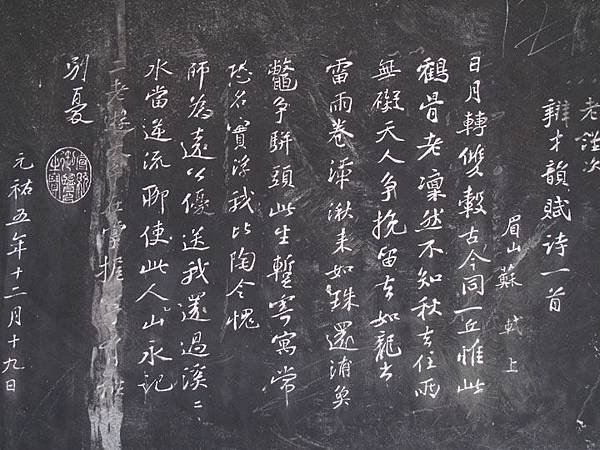 老謹次
辯才韻賦诗一首
眉山蘇軾上
日月轉雙轂古今同一丘惟此
鶴骨老凜然不知秋去住兩
無礙天人争挽留去如龍出
雷雨卷潭湫来如珠還浦魚
鼈争駢頭此生蹔寄寓常
恐名實浮我比陶令愧
師為遠公優送我還過溪〻
水當逆流聊使此人山永記
二老在掌握有離
别憂
元祐五年十二月十九日